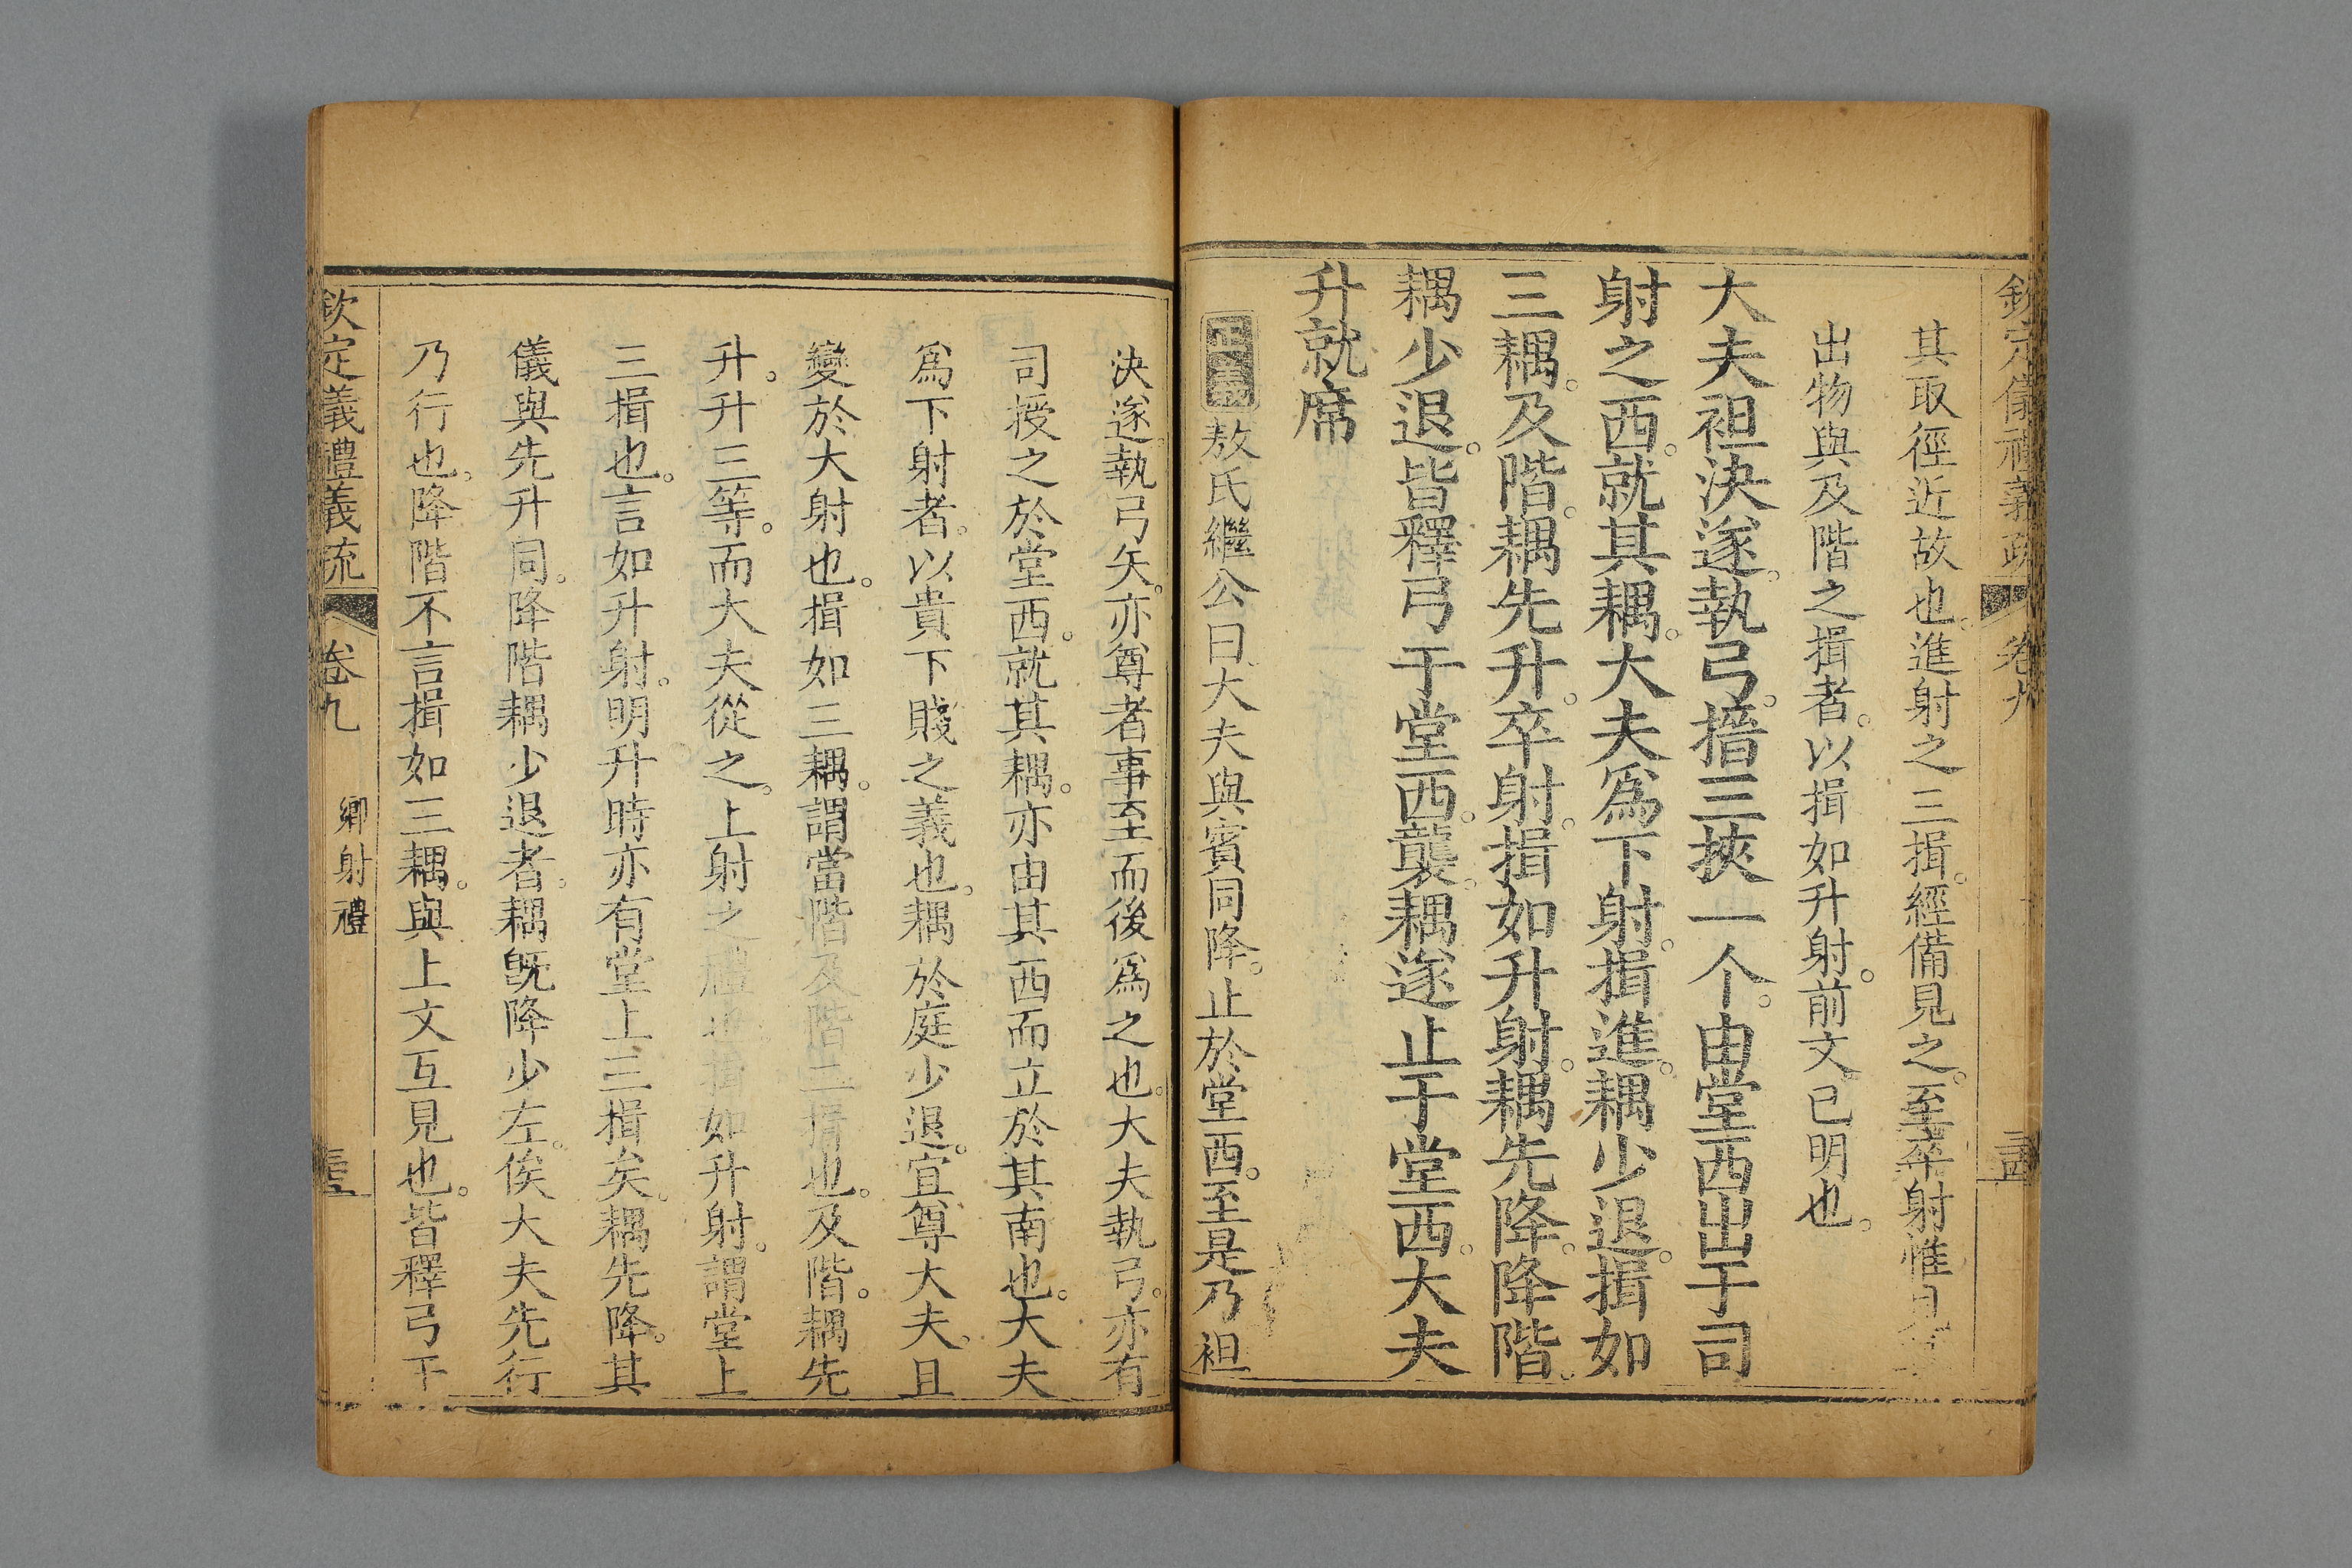 欽定儀禮義疏 卷九
其取徑近故也。進射之三揖。經備見之。至卒射惟見
出物與及階之揖者。以揖如升射。前文已明也。
大夫袒決遂。執弓。搢三挾一个。由堂西出于司
射之西。就其耦。大夫爲下射。揖進。耦少退。揖如
三耦。及階。耦先升。卒射。揖如升射。耦先降。降階。
耦少退。皆釋弓于堂西。襲。耦遂止于堂西。大夫
升就席
正義敖氏繼公曰。大夫與賓同降。止於堂西。至是乃袒
決遂。執弓矢。亦尊者事至而後爲之也。大夫執弓。亦有
司授之於堂西。就其耦。亦由其西而立於其南也。大夫
爲下射者。以貴下賤之義也。耦於庭少退。宜尊大夫。且
變於大射也。揖如三耦。謂當階及階二揖也。及階。耦先
升。升三等。而大夫從之。上射之禮也。揖如升射。謂堂上
三揖也。言如升射。明升時亦有堂上三揖矣。耦先降。其
儀與先升同。降階耦少退者。耦既降少左。俟大夫先行
乃行也。降階不言揖如三耦。與上文互見也。皆釋弓于
欽定義禮義疏 卷九 鄉射禮